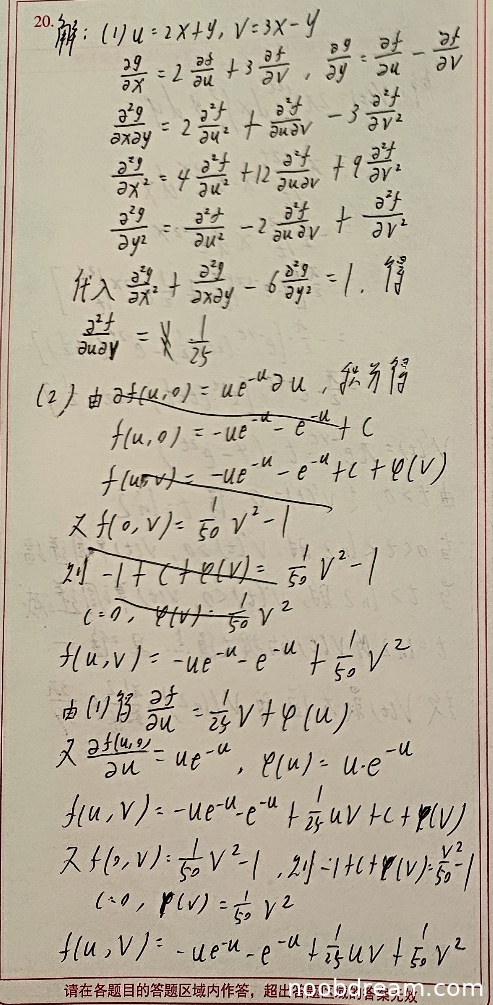 20. 解: (1) u=2x+y, v=3x-y
∂g/∂x = 2 ∂f/∂u + 3 ∂f/∂v , ∂g/∂y = ∂f/∂u - ∂f/∂v
∂²g/∂x∂y = 2 ∂²f/∂u² + ∂²f/∂u∂v - 3 ∂²f/∂v²
∂²g/∂x² = 4 ∂²f/∂u² + 12 ∂²f/∂u∂v + 9 ∂²f/∂v²
∂²g/∂y² = ∂²f/∂u² - 2 ∂²f/∂u∂v + ∂²f/∂v²
代入 ∂²g/∂x² + ∂²g/∂x∂y - 6 ∂²g/∂y² = 1. 得
∂²f/∂u∂v = 1/25
(2) 由 ∂f(u,0) = ue^{-u}∂u , 积分得
f(u,0) = -ue^{-u} - e^{-u} + C
f(u,v) = -ue^{-u} - e^{-u} + C + φ(v)
又 f(0,v) = 1/50 v² - 1
则 -1 + C + φ(v) = 1/50 v² - 1
C=0, φ(v) = 1/50 v²
f(u,v) = -ue^{-u} - e^{-u} + 1/50 v²
由(1)得 ∂f/∂u = 1/25 v + φ(u)
又 ∂f(u,0)/∂u = ue^{-u} , φ(u) = u·e^{-u}
f(u,v) = -ue^{-u} - e^{-u} + 1/25 uv + C + φ(v)
又 f(0,v) = 1/50 v² - 1 , 则 -1+C+φ(v) = v²/50 - 1
C=0, φ(v) = 1/50 v²
f(u,v) = -ue^{-u} - e^{-u} + 1/25 uv + 1/50 v²
请在各题目的答题区域内作答，超出答题区域的答案无效
nextbdream.com